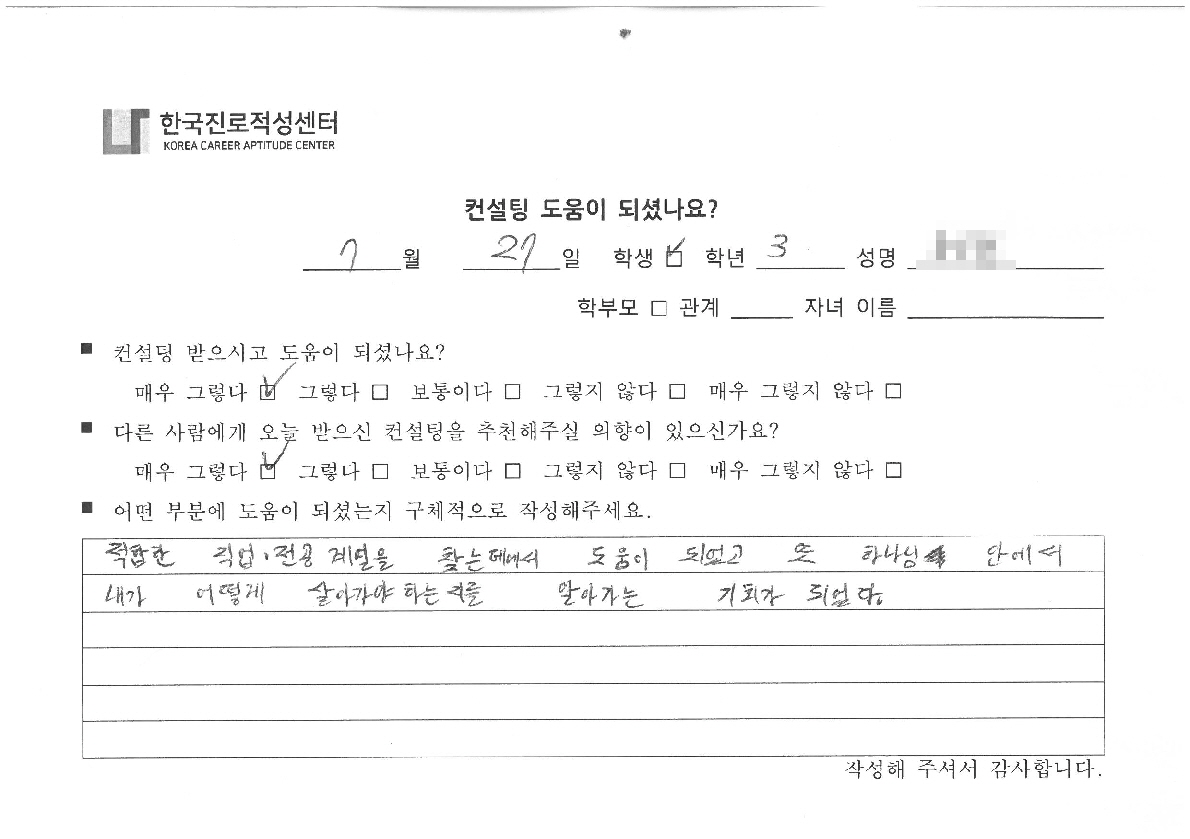 한국진로적성센터
KOREA CAREER APTITUDE CENTER
컨설팅 도움이 되셨나요?
7 월 27 일 학생 ☑ 학년 3 성명
학부모 □ 관계 자녀 이름
■ 컨설팅 받으시고 도움이 되셨나요?
매우 그렇다 ☑ 그렇다 □ 보통이다 □ 그렇지 않다 □ 매우 그렇지 않다 □
■ 다른 사람에게 오늘 받으신 컨설팅을 추천해주실 의향이 있으신가요?
매우 그렇다 ☑ 그렇다 □ 보통이다 □ 그렇지 않다 □ 매우 그렇지 않다 □
■ 어떤 부분에 도움이 되셨는지 구체적으로 작성해주세요.
적합한 직업·전공 계열을 찾는데에서 도움이 되었고 또 하나님 안에서
내가 어떻게 살아가야 하는지를 알아가는 기회가 되었다.
작성해 주셔서 감사합니다.